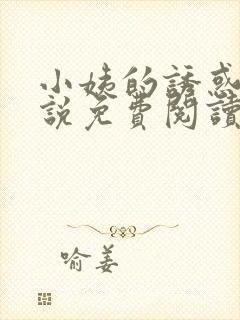 小姨的誘惑
說免費閱讀
喻姜